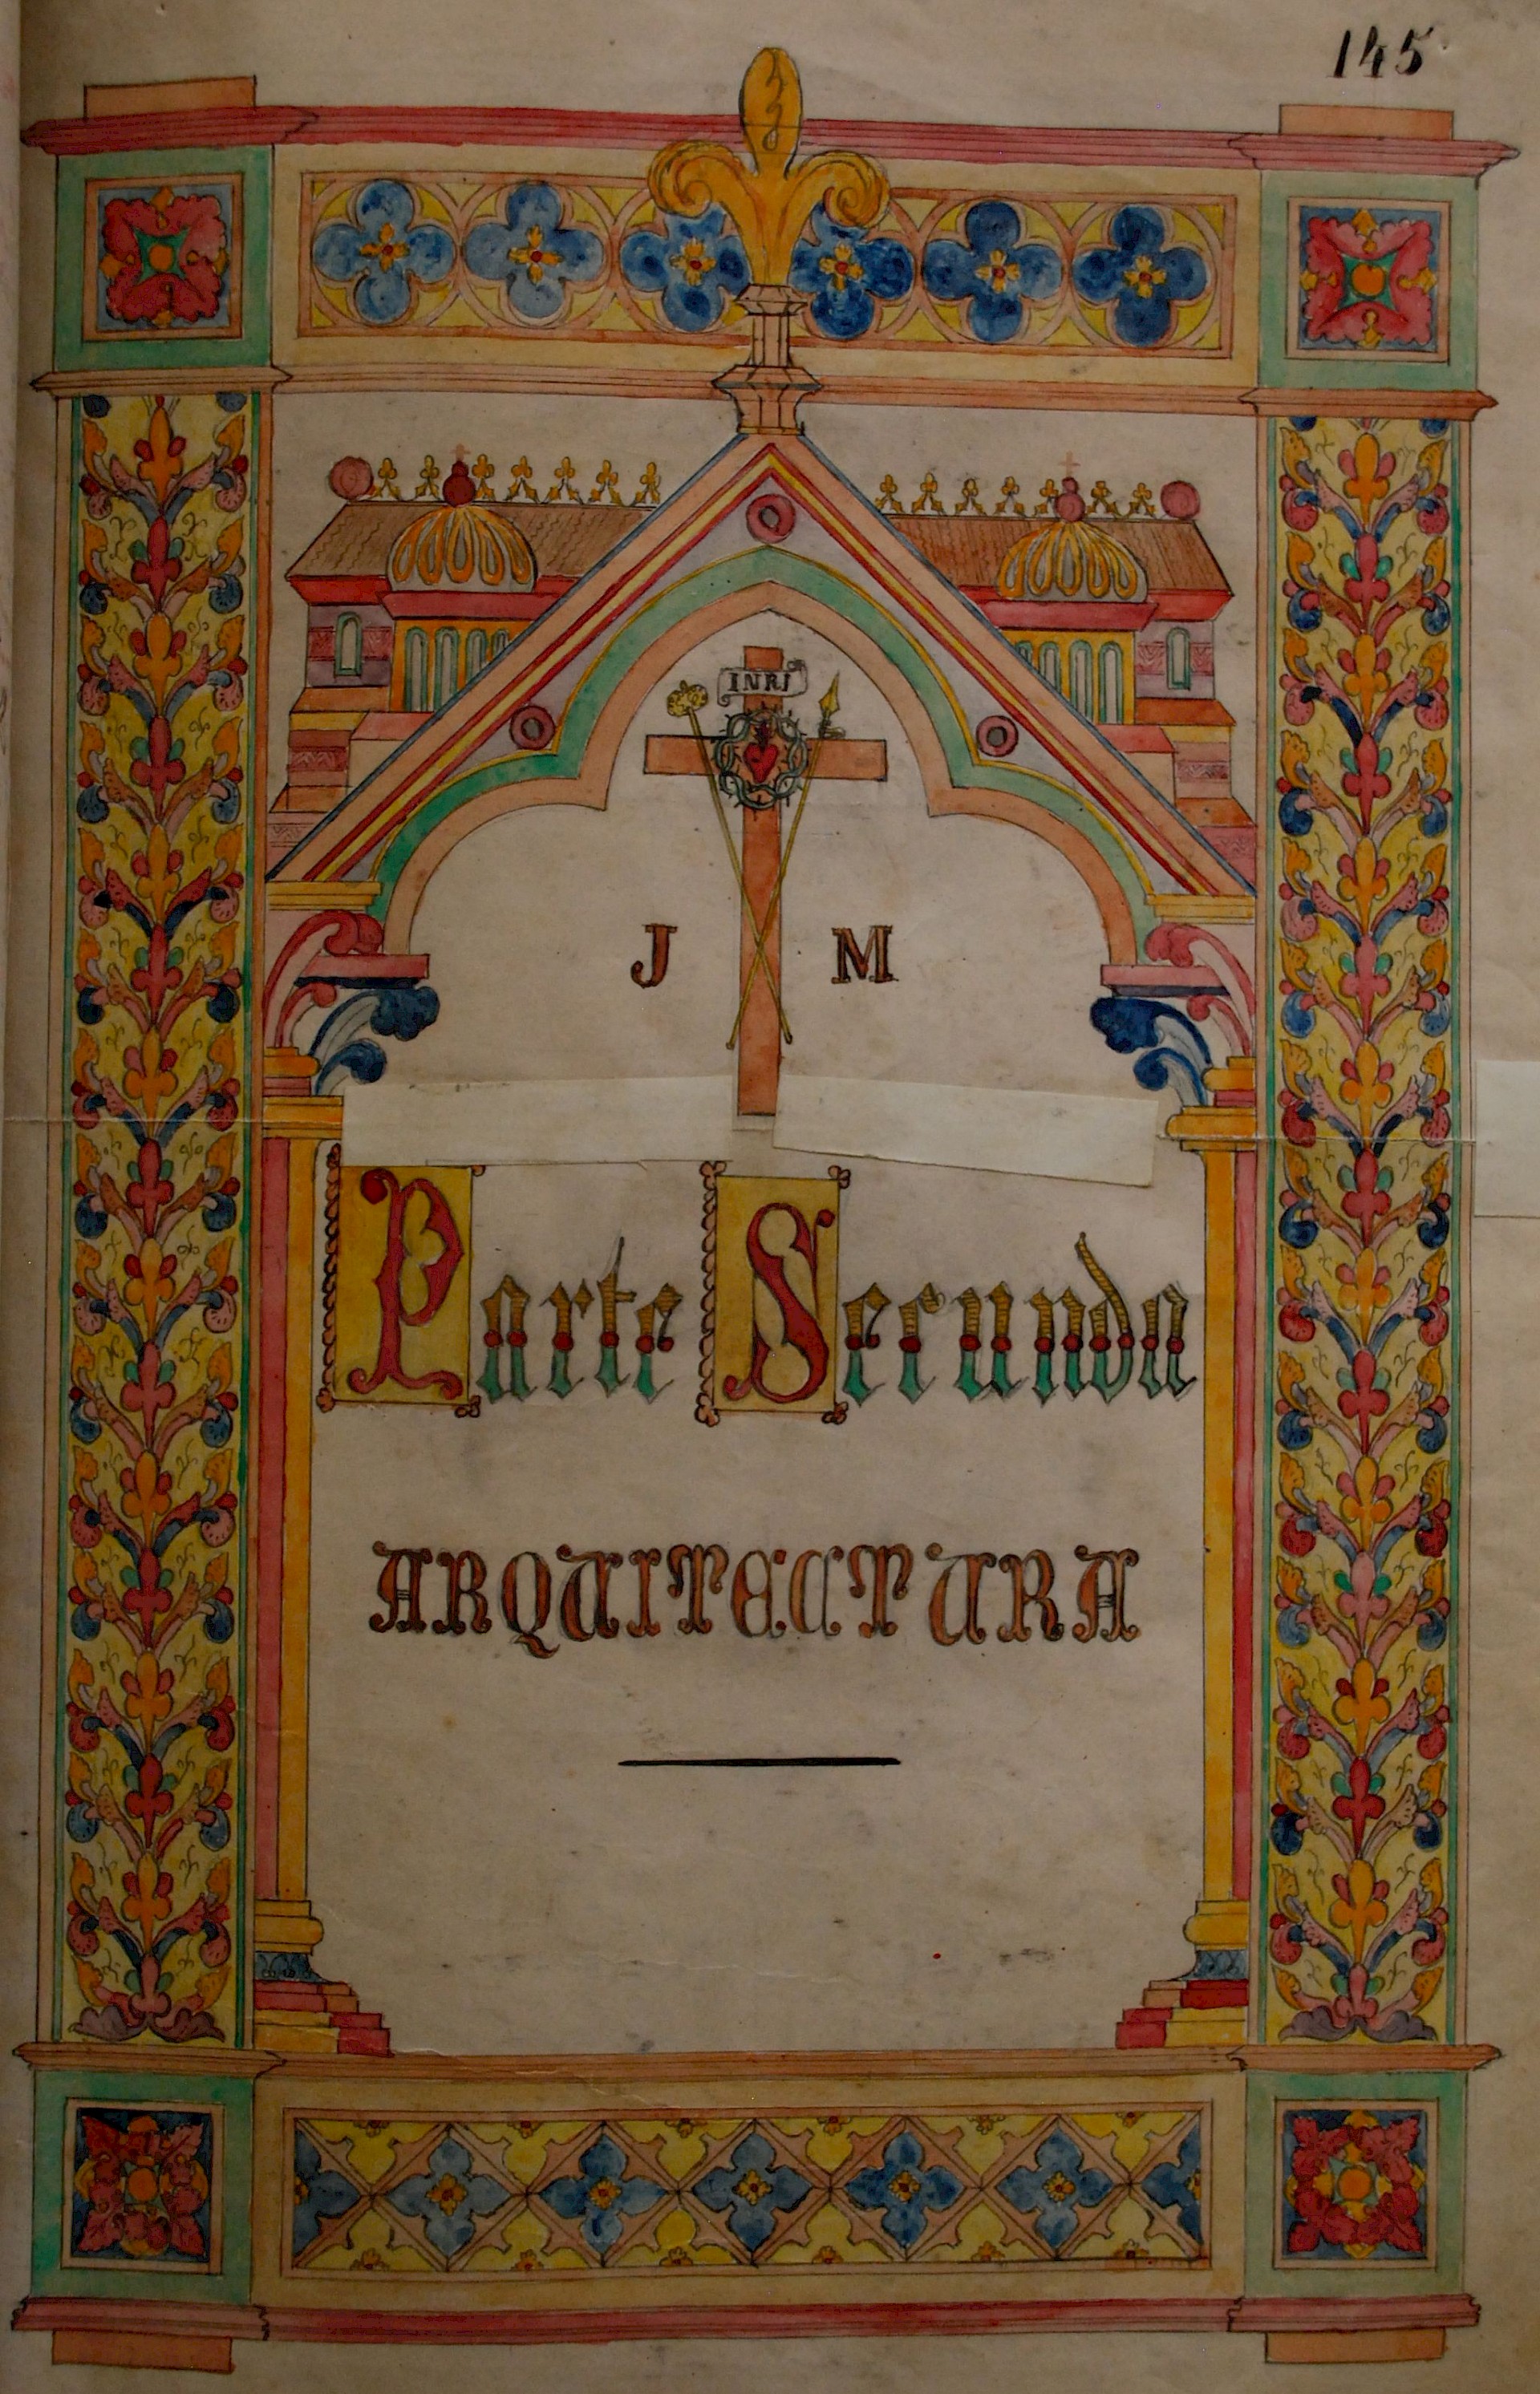 145
INRI
J M
Parte Secunda
ARQUITECTURA